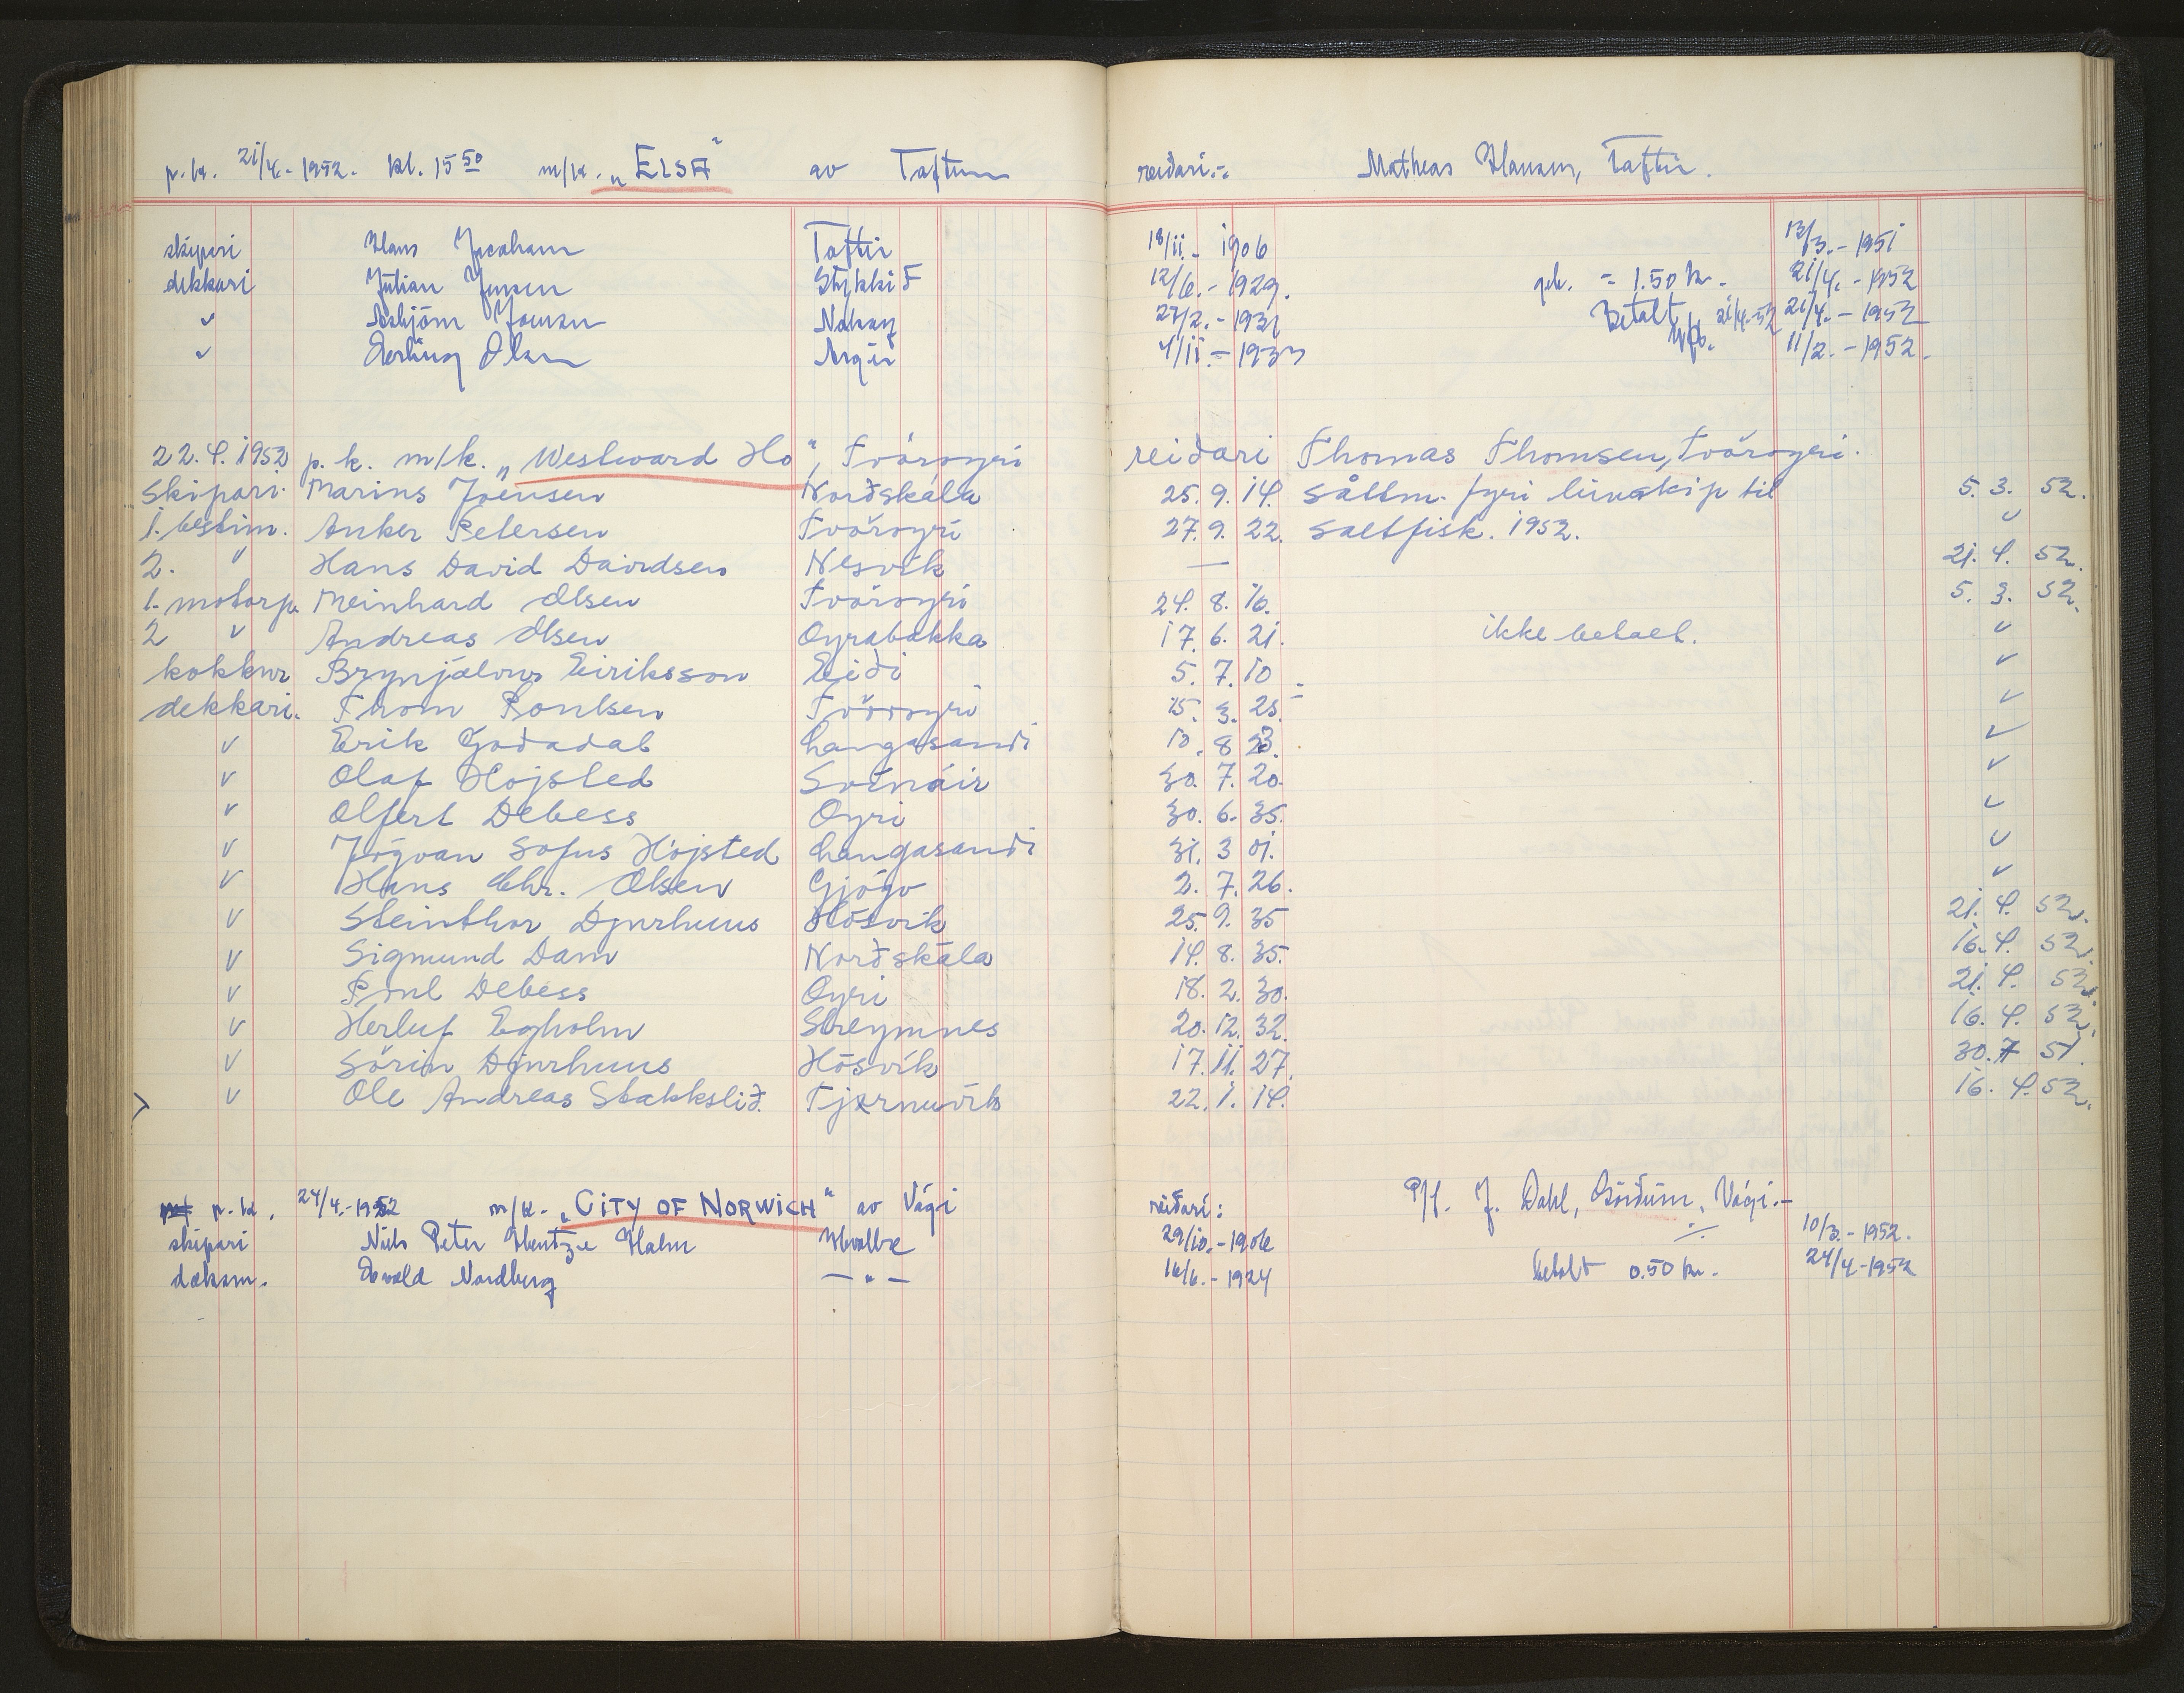 p.k. 21/4.-1952. kl. 15 50 m/k. „ELSA" av Taftum reiðari:- Matheas Hansen, Taftir.
skipari Hans Jacobsen Taftir 18/11.- 1906 13/3.- 1951
dekkari Julian Jensen Stykkið 12/6.- 1929. geb. = 1.50 kr. 21/4.- 1952
" Asbjörn Joensen 27/2.- 1931 Betalt 21/4-52 21/4.- 1952
" Erling Olsen Argir 4/11.- 1933 11/2.- 1952.
22.4.1952 p.k. m/k. „Westward Ho", Tvöroyri reiðari Thomas Thomsen, Tvöroyri.
Skipari. Marius Joensen Norðskála 25.9.14. fyri línuskip til 5. 3. 52.
1. bestim. Anker Petersen Tvöroyri 27.9.22. Saltfisk. 1952. "
2. " Hans David Davidsen Nesvík — 21. 4. 52.
1. motorp. Meinhard Olsen Tvöroyri 24. 8. 16. 5. 3. 52.
2 " Andreas Olsen Oyrabakka 17. 6. 21. ikke betalt. "
kokkur Brynjálvur Eiriksson Eiði 5. 7. 10 "
dekkari. Thom Poulsen Tvöroyri 25. 3. 25. "
" Erik Godadal Langasandi 10. 8 23. "
" Olaf Højsted Svínáir 30. 7. 20. "
" Olfert Debess Oyri 30. 6. 35. "
" Jógvan Sofus Højsted Langasandi 31. 3 01. "
" Hans Chr. Olsen Gjógv 2. 7. 26. "
" Steinthor Djurhuus Hósvík 25. 9. 35 21. 4. 52.
" Sigmund Dam Norðskála 14. 8. 35. 16. 4. 52.
" Poul Debess Oyri 18. 2. 30. 21. 4. 52.
" Herluf Egholm Streymnes 20. 12. 32. 16. 4. 52.
" Sörin Djurhuus Hósvík 17. 11. 27. 30. 7 51.
" Ole Andreas Stakkslið. Tjørnuvík 22. 1. 14. 16. 4. 52.
p.k. 24/4.-1952 m/k. „CITY OF NORWICH" av Vági reiðari: P/f. J. Dahl, Vági.-
skipari Niels Peter Hentze Holm Hvalbø 29/10.- 1906 10/3.- 1952.
dæksm. Nordberg — " — 16/6.- 1924 betalt 0.50 kr. 24/4-1952